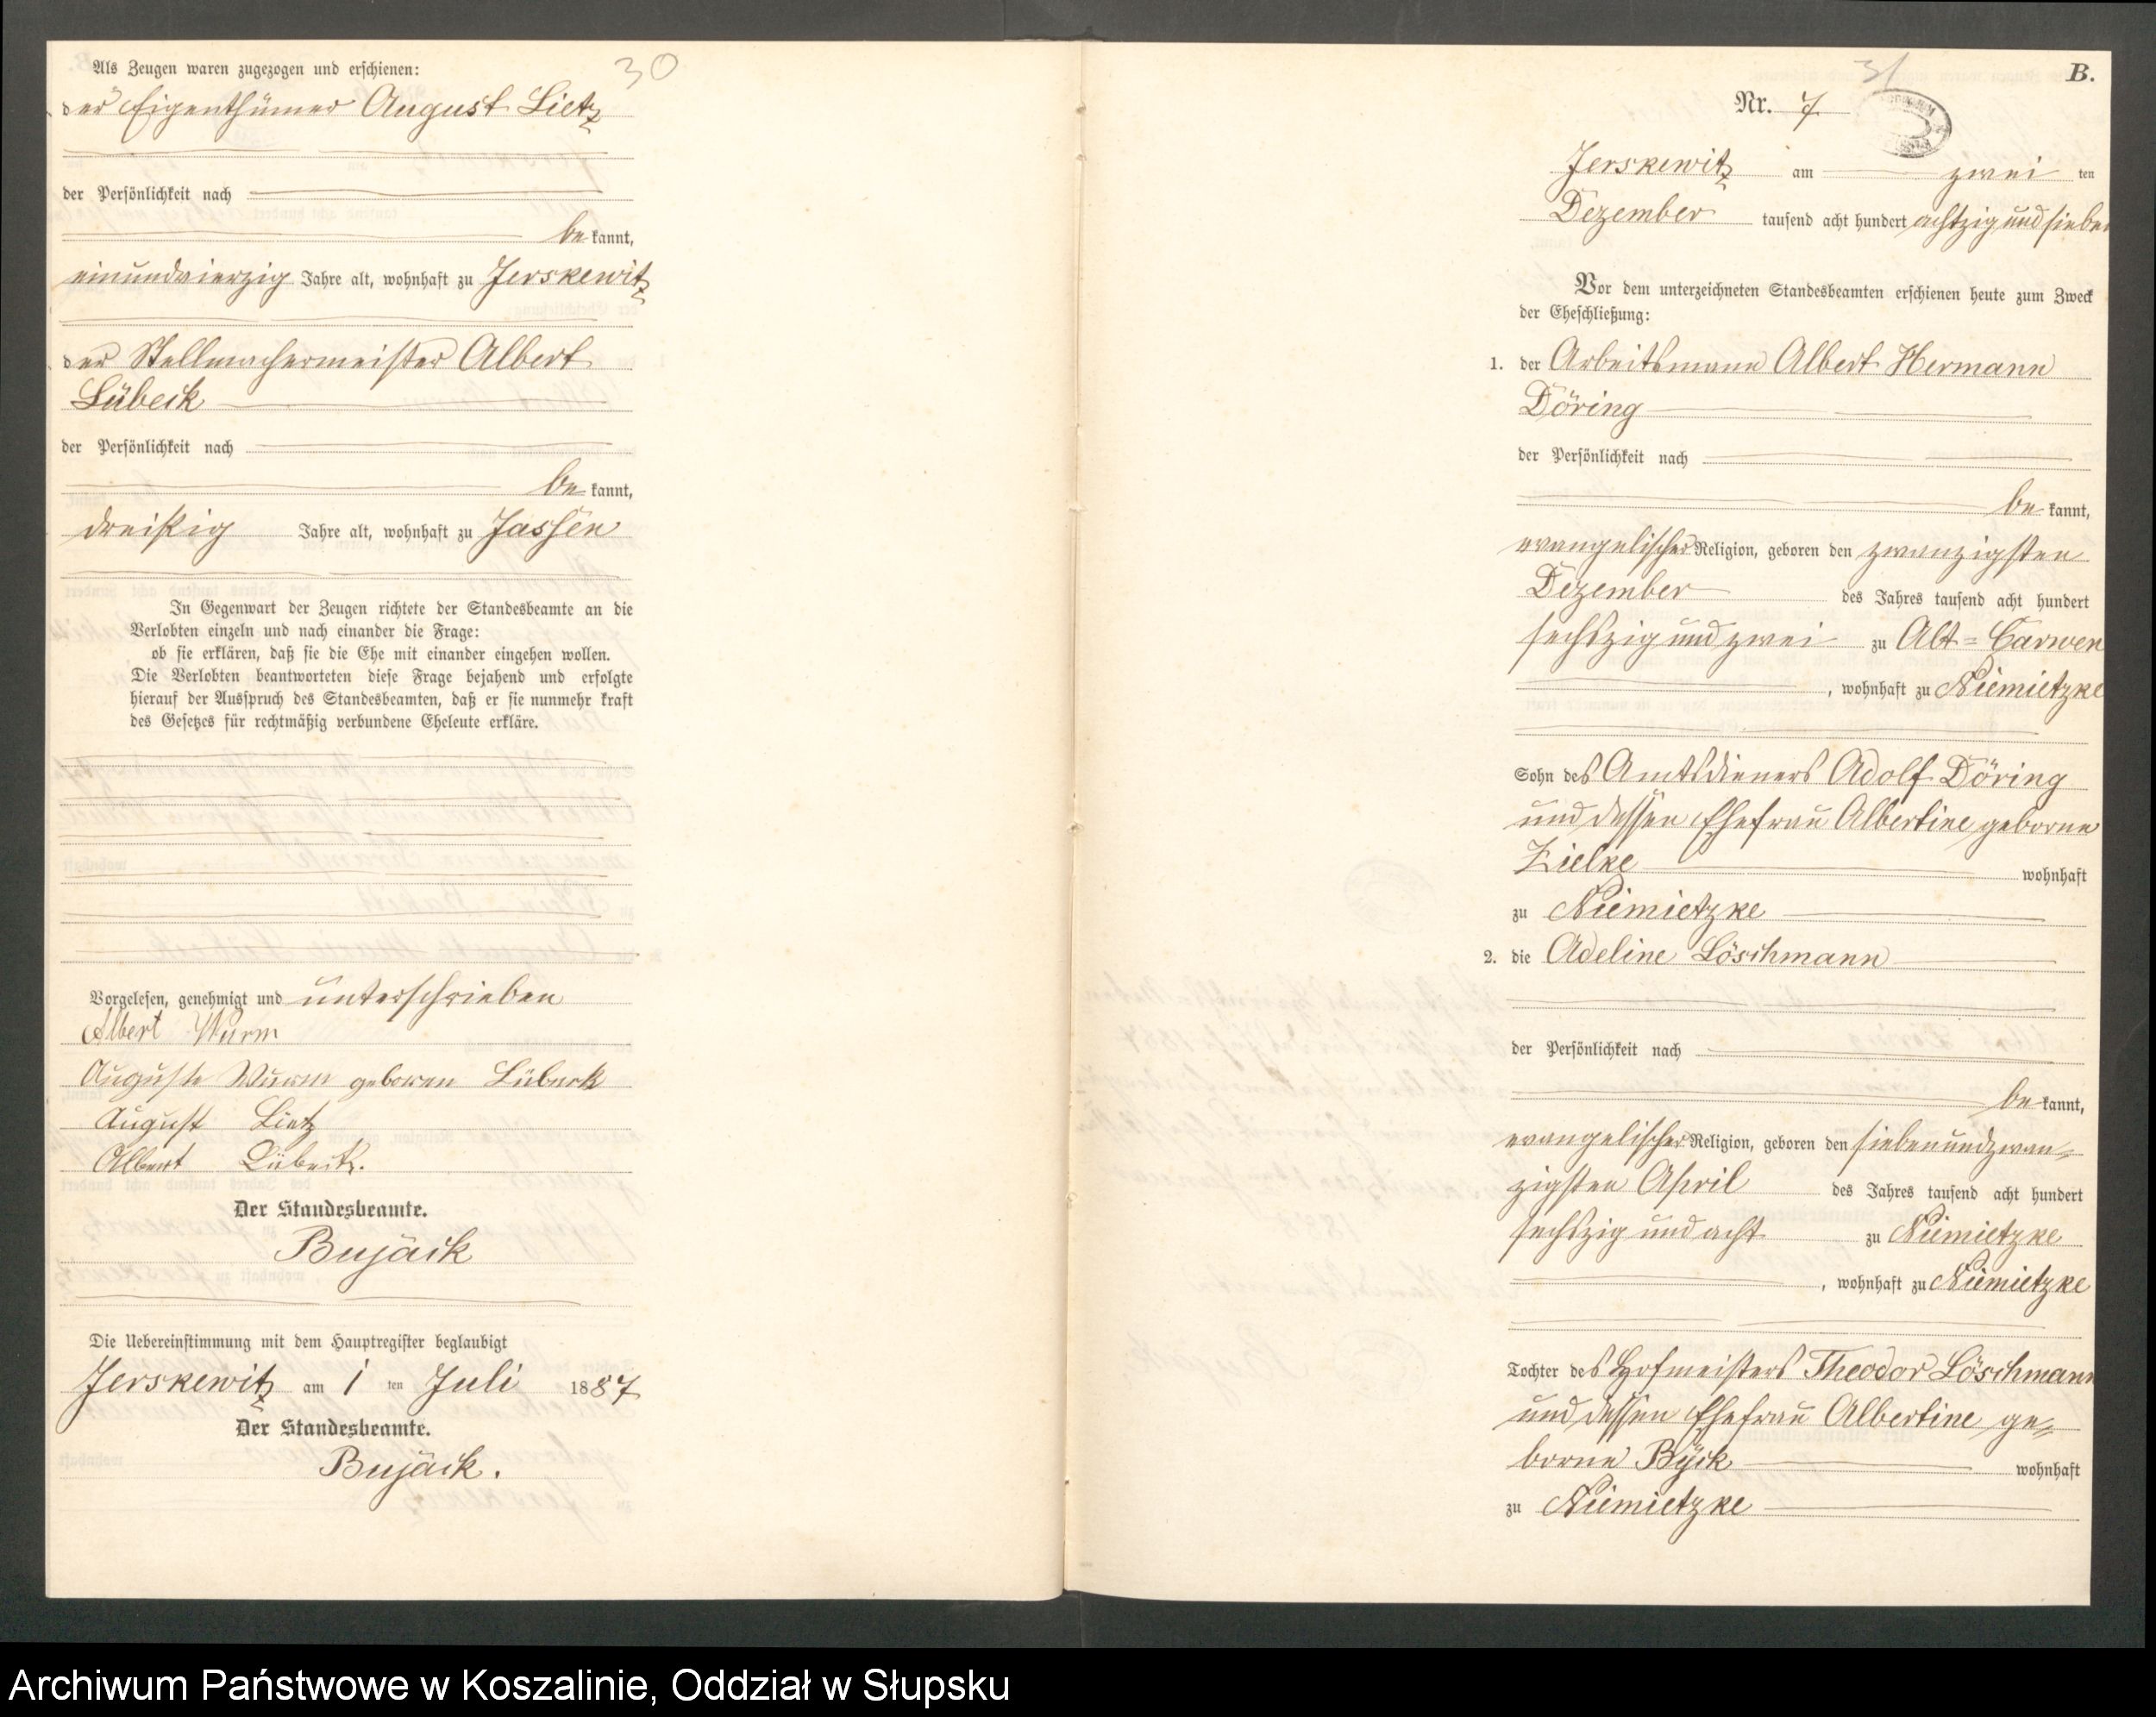 Als Zeugen waren zugezogen und erschienen:
30
der Eigenthümer August Lietz
der Persönlichkeit nach
be kannt,
einundvierzig Jahre alt, wohnhaft zu Jerskewitz
der Stellmachermeister Albert
Lübeck
der Persönlichkeit nach
be kannt,
dreißig Jahre alt, wohnhaft zu Jassen
In Gegenwart der Zeugen richtete der Standesbeamte an die
Verlobten einzeln und nach einander die Frage:
ob sie erklären, daß sie die Ehe mit einander eingehen wollen.
Die Verlobten beantworteten diese Frage bejahend und erfolgte
hierauf der Ausspruch des Standesbeamten, daß er sie nunmehr kraft
des Gesetzes für rechtmäßig verbundene Eheleute erkläre.
Vorgelesen, genehmigt und unterschrieben
Albert Wurm
Auguste Wurm geboren Lübeck
August Lietz
Albert Lübeck.
Der Standesbeamte.
Bujäck
Die Uebereinstimmung mit dem Hauptregister beglaubigt
Jerskewitz am 1 ten Juli 1887
Der Standesbeamte.
Bujäck.
31
B.
Nr. 7
Jerskewitz am zwei ten
Dezember tausend acht hundert achtzig und sieben
Vor dem unterzeichneten Standesbeamten erschienen heute zum Zweck
der Eheschließung:
1. der Arbeitsmann Albert Hermann
Döring
der Persönlichkeit nach
be kannt,
evangelischer Religion, geboren den zwanzigsten
Dezember des Jahres tausend acht hundert
sechszig und zwei zu Alt=Carwen
, wohnhaft zu Niemietzke
Sohn des Amtsdieners Adolf Döring
und dessen Ehefrau Albertine geborne
Zielke wohnhaft
zu Niemietzke
2. die Adeline Löschmann
der Persönlichkeit nach
be kannt,
evangelischer Religion, geboren den siebenundzwan=
zigsten April des Jahres tausend acht hundert
sechszig und acht zu Niemietzke
, wohnhaft zu Niemietzke
Tochter des Hofmeisters Theodor Löschmann
und dessen Ehefrau Albertine ge=
borne Byck wohnhaft
zu Niemietzke
Archiwum Państwowe w Koszalinie, Oddział w Słupsku